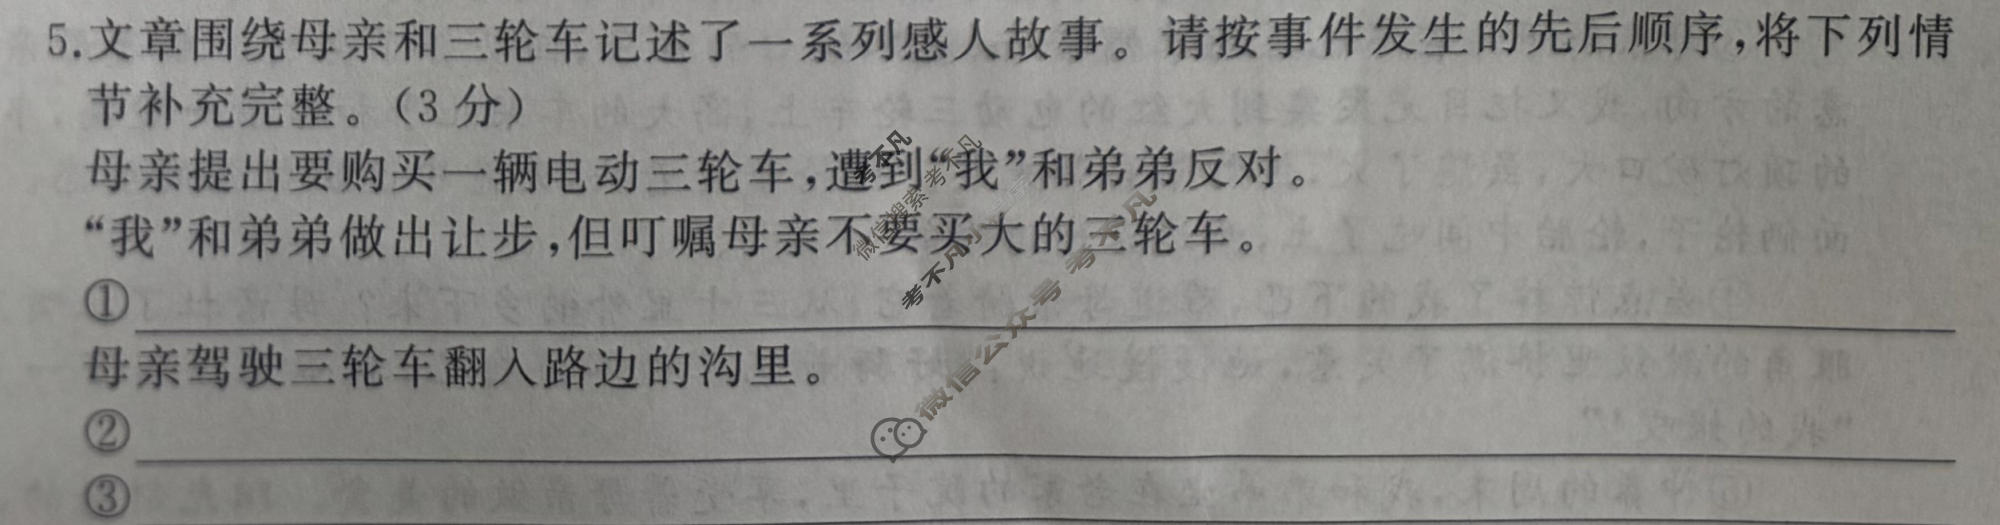 5.文章围绕母亲和三轮车记述了一系列感人故事。请按事件发生的先后顺序,将下列情
节补充完整。(3分)
母亲提出要购买一辆电动三轮车,遭到“我”和弟弟反对。
“我”和弟弟做出让步,但叮嘱母亲不要买大的三轮车。
①
母亲驾驶三轮车翻入路边的沟里。
②
③
考不凡
微信搜索考不凡
考不凡
微信公众号 考不凡